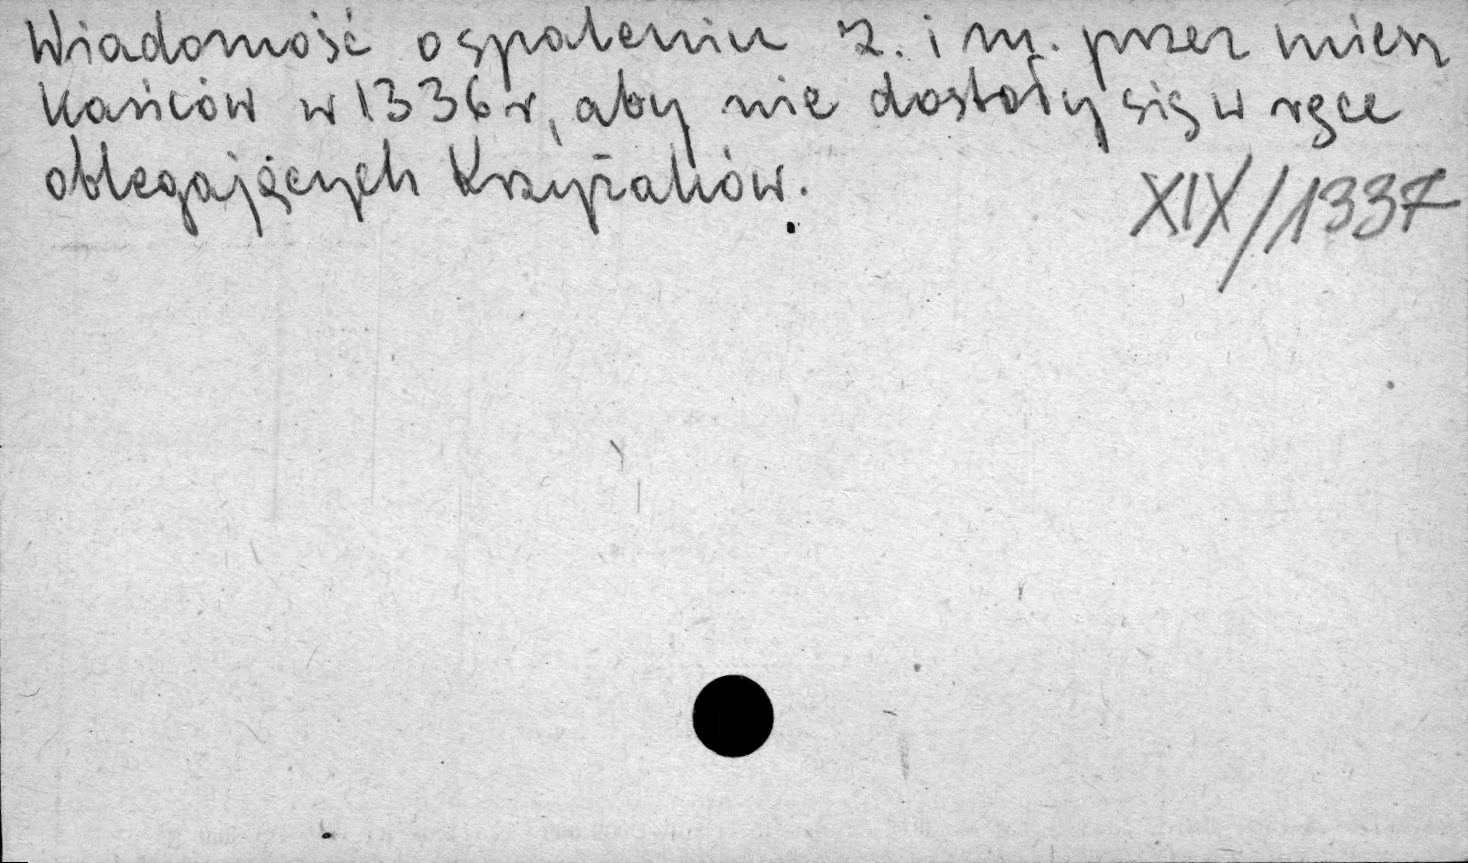 Wiadomość o spaleniu z. i m. przez miesz
kańców w 1336 r, aby nie dostały się w ręce
oblegających Krzyżaków.
XIX/1337